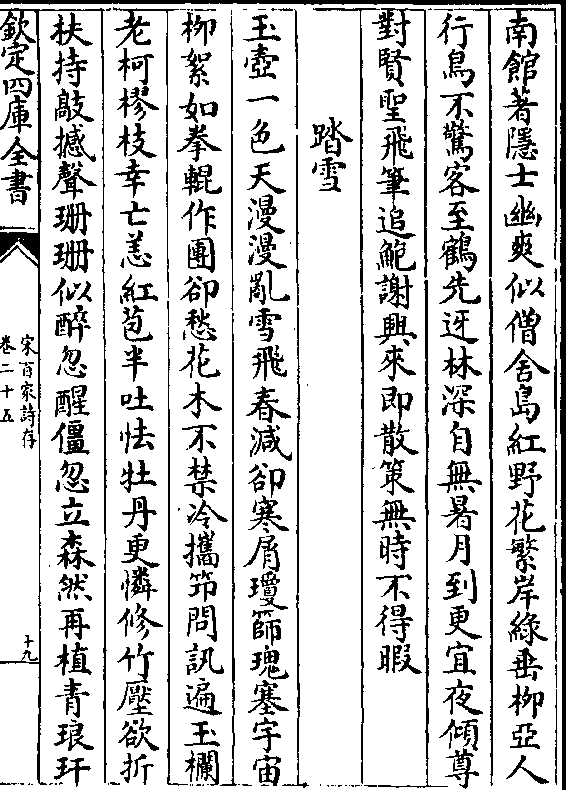 南館著隱士幽爽似僧舍島紅野花繁岸綠垂柳亞人
行鳥不驚客至鶴先迓林深自無暑月到更宜夜傾尊
對賢聖飛筆追鮑謝興來即散策無時不得暇
踏雪
玉壺一色天漫漫亂雪飛春減卻寒屑瓊篩瑰塞宇宙
柳絮如拳輥作團卻愁花木不禁冷攜笻問訊遍玉欄
老柯樛枝幸亡恙紅苞半吐怯牡丹更憐修竹壓欲折
扶持敲撼聲珊珊似醉忽醒僵忽立森然再植青琅玕
欽定四庫全書
宋百家詩存
卷二十五
十九